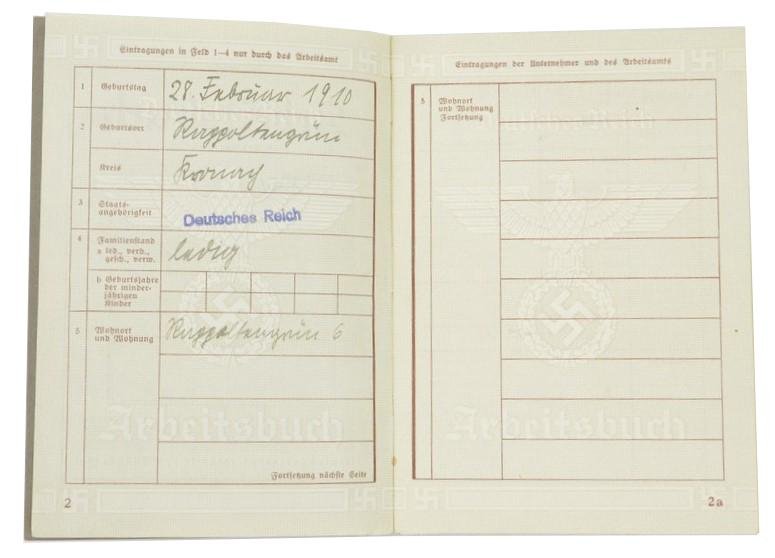 Eintragungen in Feld 1—4 nur durch das Arbeitsamt
1 Geburtstag 28. Februar 1910
2 Geburtsort Ruppoltengrün
Kreis Kronach
3 Staats-
angehörigkeit Deutsches Reich
4 Familienstand ledig
a led., verh.,
gesch., verw.
b Geburtsjahre
der minder-
jährigen
Kinder
5 Wohnort
und Wohnung Ruppoltengrün 6
Arbeitsbuch
Fortsetzung nächste Seite
2
Eintragungen der Unternehmer und des Arbeitsamts
5 Wohnort
und Wohnung
Fortsetzung
Deutsches Reich
Arbeitsbuch
2a